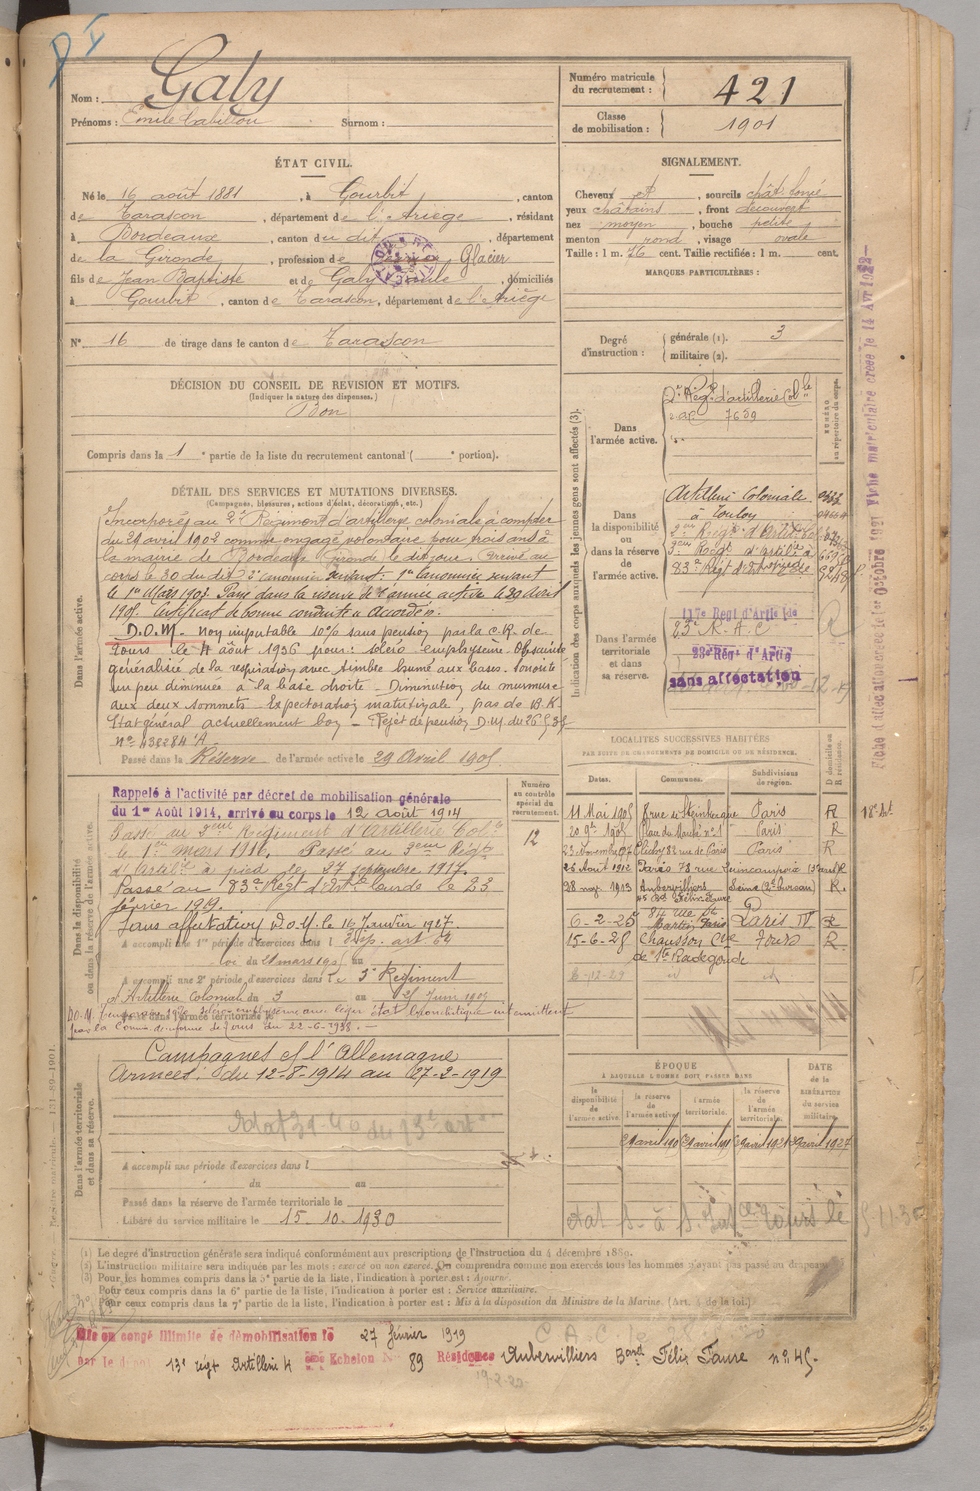 Nom : Galy
Prénoms : Emile Surnom :
Numéro matricule du recrutement : 421
Classe de mobilisation : 1901
ÉTAT CIVIL.
Né le 16 août 1881, à Gourbit, canton
de Tarascon, département de l'Ariège, résidant
à Bordeaux, canton du dit, département
de la Gironde, profession de Glacier
fils de Jean Baptiste et de Galy domiciliés
à Gourbit, canton de Tarascon, département de l'Ariège
N° 16 de tirage dans le canton de Tarascon
SIGNALEMENT.
Cheveux sourcils chât.
yeux châtains, front découvert
nez moyen, bouche petite
menton rond, visage ovale
Taille : 1 m. 76 cent. Taille rectifiée : 1 m. cent.
MARQUES PARTICULIÈRES :
Degré d'instruction : générale (1). 3
militaire (2).
DÉCISION DU CONSEIL DE REVISION ET MOTIFS.
(Indiquer la nature des dispenses.)
Bon
Compris dans la 1e partie de la liste du recrutement cantonal ( e portion).
DÉTAIL DES SERVICES ET MUTATIONS DIVERSES.
(Campagnes, blessures, actions d'éclat, décorations, etc.)
Dans l'armée active.
Incorporé au 2e Régiment d'artillerie coloniale à compter
du 29 avril 1902 comme engagé volontaire pour trois ans à
la mairie de Bordeaux Gironde le dit jour. Arrivé au
corps le 30 du dit 2e canonnier servant. 1er canonnier servant
le 1er Mars 1903. Passé dans la réserve de l'armée active le 29 Avril
1905. Certificat de bonne conduite accordé.
D.O.M. non imputable 10% sans pension par la C.R. de
Tours le 4 août 1936 pour : scléro emphysème. Obscurité
généralisée de la respiration avec timbre humé aux bases. Sonorité
un peu diminuée à la base droite - Diminution du murmure
aux deux sommets - Expectoration matutinale, pas de B.K.
Etat général actuellement bon - Rejet de pension D.M. du 26
n° 438284 A.
Passé dans la Réserve de l'armée active le 29 Avril 1905
Indication des corps auxquels les jeunes gens sont affectés (3).
NUMÉRO au répertoire du corps.
Dans l'armée active.
2e Rég. d'artillerie Colle
7659
Dans la disponibilité ou dans la réserve de l'armée active.
Artillerie Coloniale
à Toulon
3me Régt d'Artie à
83e Régt d'Art
Dans l'armée territoriale et dans sa réserve.
117e Regt d'Artie
23e R.A.C.
23e Régt d'Artie
sans affectation
Fiche d'affectation créée le 1er octobre 1921 Fiche matriculaire créée le 14 Avr 192
Dans la disponibilité ou dans la réserve de l'armée active.
Numéro au contrôle spécial du recrutement.
12
Rappelé à l'activité par décret de mobilisation générale
du 1er Août 1914, arrivé au corps le 12 août 1914
Passé au 3eme Régiment d'Artillerie Colle
le 1er mars 1916. Passé au 3eme Régt
d'Artie à pied le 27 septembre 1917.
Passé au 83e Régt d'Artie lourde le 23
février 1919.
Sans affectation D.O.M. le 16 Janvier 1927
A accompli une 1re période d'exercices dans l Disp. art 62
loi du 21 mars 1905 au
A accompli une 2e période d'exercices dans le 3e Régiment
d'Artillerie Coloniale du 3 au Juin 1909
par la Comm de réforme de Tours du 22-6-1938. -
LOCALITÉS SUCCESSIVES HABITÉES
PAR SUITE DE CHANGEMENTS DE DOMICILE OU DE RÉSIDENCE.
Dates. Communes. Subdivisions de région. D domicile ou R résidence.
11 Mai 1905 8 rue de Steinkerque Paris R
20 9bre 1905 Place du Marché n° 1 Paris R
23 Novembre 07 Clichy 82 rue de Paris Paris R
26 Août 1912 Paris 78 rue Quincampoix R
28 mag 1913 Aubervilliers Seine (2e bureau) R.
45 Bd Félix Faure
6-2-25 84 rue St Martin Paris Paris IV R
15-6-28 Chausson Cne Tours R
de Ste Radegonde
6-12-29 id id
Dans l'armée territoriale et dans sa réserve.
Campagnes c/ l'Allemagne
Armées : du 12-8-1914 au 27-2-1919
A accompli une période d'exercices dans l
du au
Passé dans la réserve de l'armée territoriale le
Libéré du service militaire le 15-10-1930
ÉPOQUE
À LAQUELLE L'HOMME DOIT PASSER DANS
la disponibilité de l'armée active. la réserve de l'armée active. l'armée territoriale. la réserve de l'armée territoriale.
DATE de la LIBÉRATION du service militaire.
29 avril 1905 29 avril 29 avril 29 avril 1927
(1) Le degré d'instruction générale sera indiqué conformément aux prescriptions de l'instruction du 4 décembre 1889.
(2) L'instruction militaire sera indiquée par les mots : exercé ou non exercé. On comprendra comme non exercés tous les hommes n'ayant pas passé au drapeau.
(3) Pour les hommes compris dans la 5e partie de la liste, l'indication à porter est : Ajourné.
Pour ceux compris dans la 6e partie de la liste, l'indication à porter est : Service auxiliaire.
Pour ceux compris dans la 7e partie de la liste, l'indication à porter est : Mis à la disposition du Ministre de la Marine. (Art. 4 de la loi.)
Mis en congé illimité de démobilisation le 27 février 1919
par le dépôt 13e régt Artillerie Echelon N° 89 Résidence Aubervilliers Bard Félix Faure n° 45-